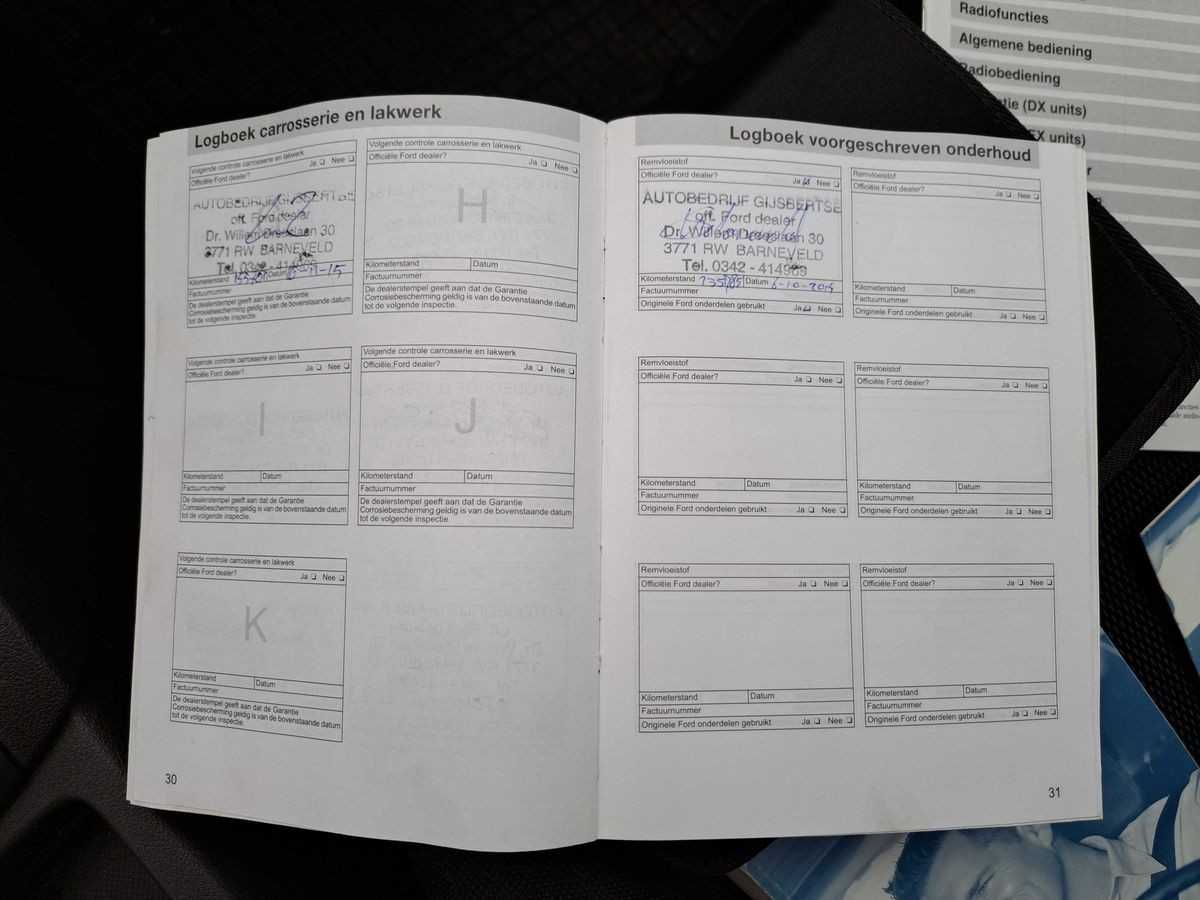 Radiofuncties
Algemene bediening
Radiobediening
tie (DX units)
EX units)
Logboek carrosserie en lakwerk
Volgende controle carrosserie en lakwerk
Officiële Ford dealer? Ja ❏ Nee ❏
AUTOBEDRIJF GIJSBERTSE
off. Ford dealer
Dr. Willem Dreeslaan 30
3771 RW BARNEVELD
Tel. 0342 - 414969
Kilometerstand Datum
Factuurnummer
De dealerstempel geeft aan dat de Garantie
Corrosiebescherming geldig is van de bovenstaande datum
tot de volgende inspectie.
Volgende controle carrosserie en lakwerk
Officiële Ford dealer? Ja ❏ Nee ❏
H
Kilometerstand Datum
Factuurnummer
De dealerstempel geeft aan dat de Garantie
Corrosiebescherming geldig is van de bovenstaande datum
tot de volgende inspectie.
Volgende controle carrosserie en lakwerk
Officiële Ford dealer? Ja ❏ Nee ❏
I
Kilometerstand Datum
Factuurnummer
De dealerstempel geeft aan dat de Garantie
Corrosiebescherming geldig is van de bovenstaande datum
tot de volgende inspectie.
Volgende controle carrosserie en lakwerk
Officiële Ford dealer? Ja ❏ Nee ❏
J
Kilometerstand Datum
Factuurnummer
De dealerstempel geeft aan dat de Garantie
Corrosiebescherming geldig is van de bovenstaande datum
tot de volgende inspectie.
Volgende controle carrosserie en lakwerk
Officiële Ford dealer? Ja ❏ Nee ❏
K
Kilometerstand Datum
Factuurnummer
De dealerstempel geeft aan dat de Garantie
Corrosiebescherming geldig is van de bovenstaande datum
tot de volgende inspectie.
30
Logboek voorgeschreven onderhoud
Remvloeistof
Officiële Ford dealer? Ja Nee ❏
AUTOBEDRIJF GIJSBERTSE
off. Ford dealer
Dr. Willem Dreeslaan 30
3771 RW BARNEVELD
Tel. 0342 - 414969
Kilometerstand Datum
Factuurnummer
Originele Ford onderdelen gebruikt Ja Nee ❏
Remvloeistof
Officiële Ford dealer? Ja ❏ Nee ❏
Kilometerstand Datum
Factuurnummer
Originele Ford onderdelen gebruikt Ja ❏ Nee ❏
Remvloeistof
Officiële Ford dealer? Ja ❏ Nee ❏
Kilometerstand Datum
Factuurnummer
Originele Ford onderdelen gebruikt Ja ❏ Nee ❏
Remvloeistof
Officiële Ford dealer? Ja ❏ Nee ❏
Kilometerstand Datum
Factuurnummer
Originele Ford onderdelen gebruikt Ja ❏ Nee ❏
Remvloeistof
Officiële Ford dealer? Ja ❏ Nee ❏
Kilometerstand Datum
Factuurnummer
Originele Ford onderdelen gebruikt Ja ❏ Nee ❏
Remvloeistof
Officiële Ford dealer? Ja ❏ Nee ❏
Kilometerstand Datum
Factuurnummer
Originele Ford onderdelen gebruikt Ja ❏ Nee ❏
31